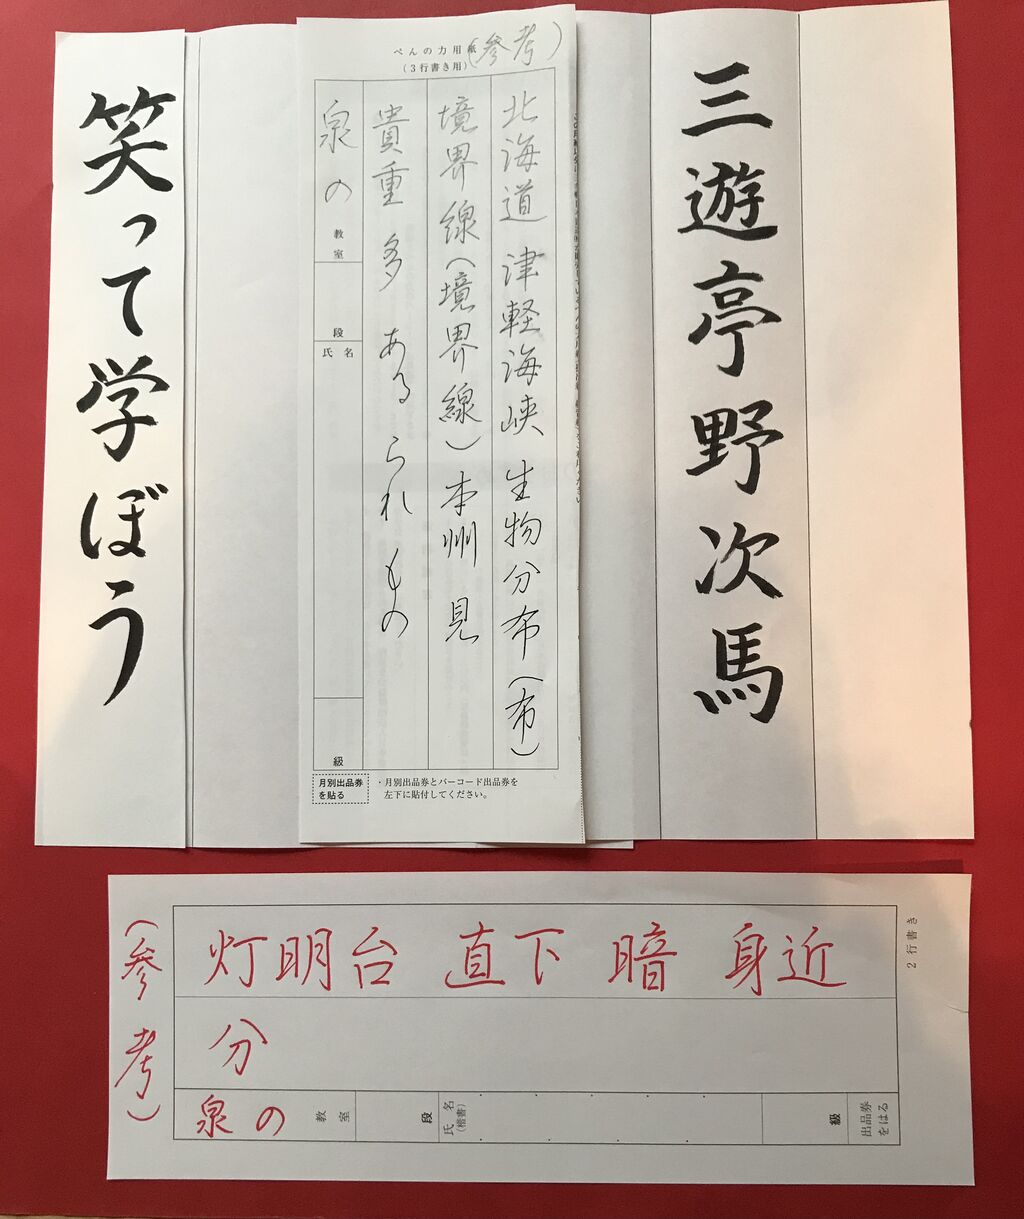 三遊亭野次馬
笑って学ぼう
ぺんの力用紙
(3行書き用)
(参考)
北海道 津軽海峡 生物分布(布)
境界線(境界線)本州 見
貴重 多 ある られ もの
泉の 教室 段 氏名 級
月別出品券を貼る
・月別出品券とバーコード出品券を
左下に貼付してください。
2行書き
(参考)
灯明台 直下 暗 身近
分
泉の 教室 段 氏名(楷書) 級 出品券をはる